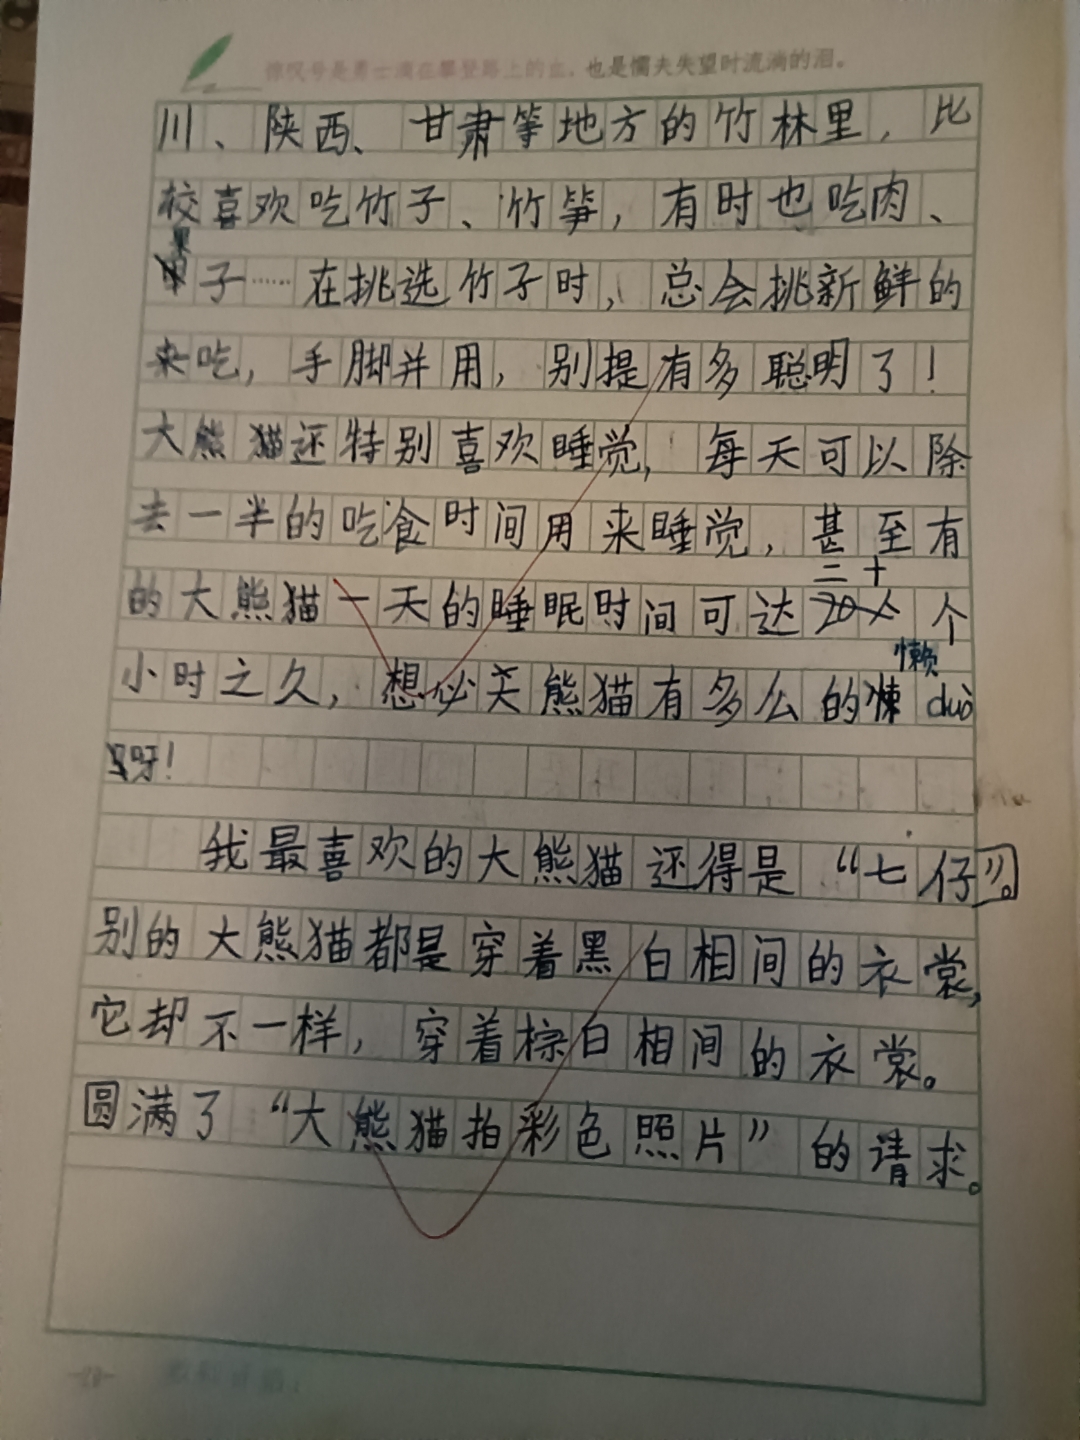 惊叹号是勇士滴在攀登路上的血，也是懦夫失望时流淌的泪。
川、陕西、甘肃等地方的竹林里，比
较喜欢吃竹子、竹笋，有时也吃肉、
果
子……在挑选竹子时，总会挑新鲜的
来吃，手脚并用，别提有多聪明了！
大熊猫还特别喜欢睡觉，每天可以除
去一半的吃食时间用来睡觉，甚至有
二十
的大熊猫一天的睡眠时间可达20个
小时之久，想必大熊猫有多么的懒duò
呀！
我最喜欢的大熊猫还得是“七仔”。
别的大熊猫都是穿着黑白相间的衣裳，
它却不一样，穿着棕白相间的衣裳。
圆满了“大熊猫拍彩色照片”的请求。